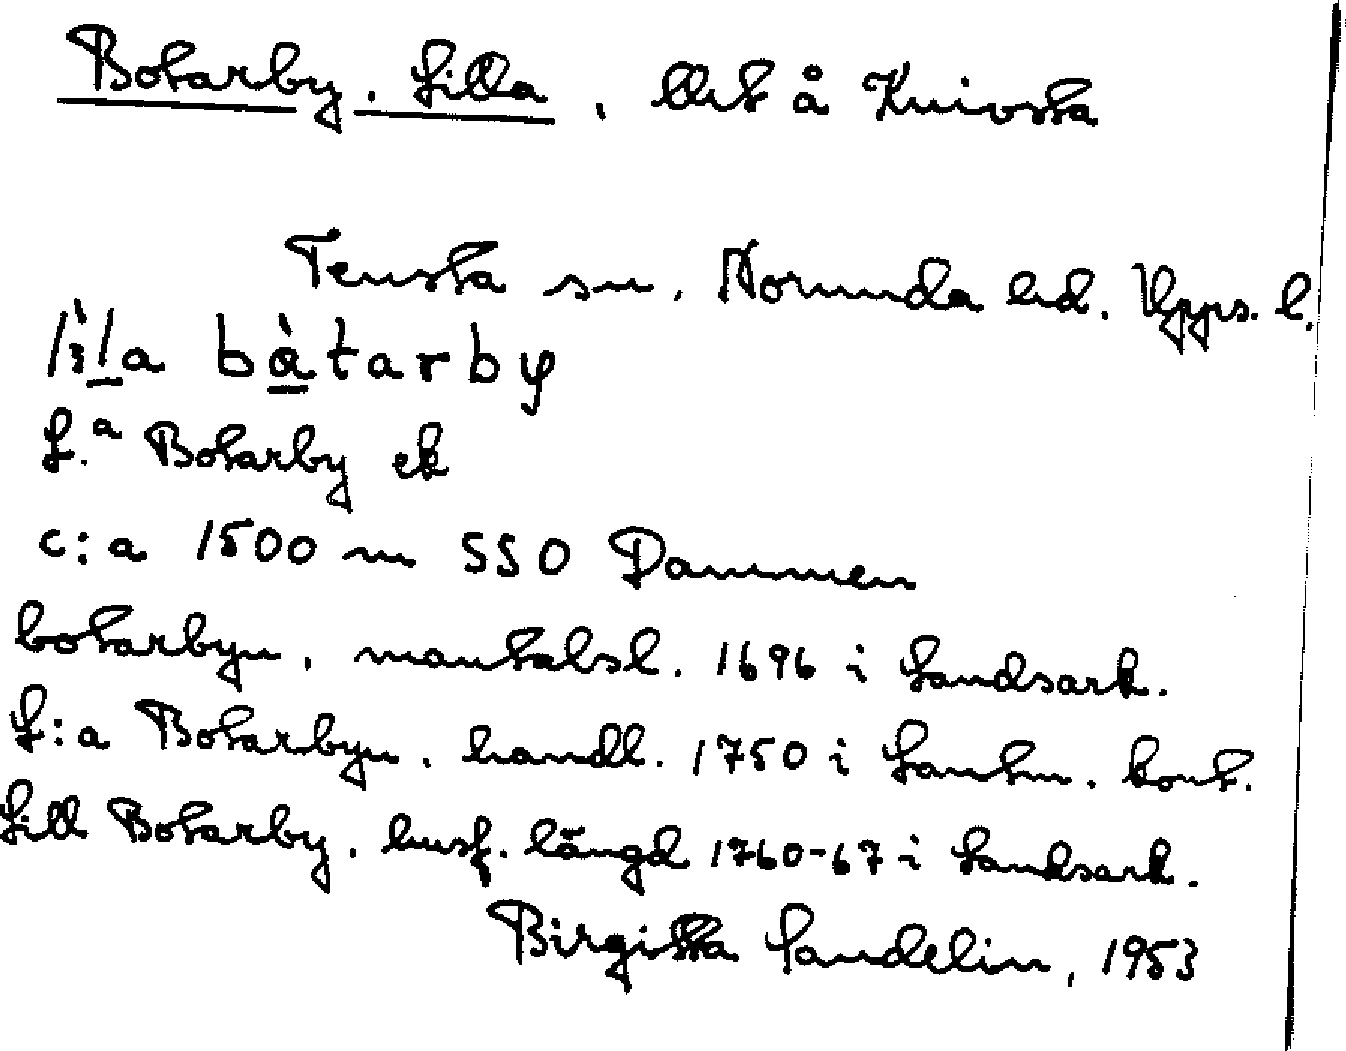 Botarby, Lilla, lht å Knivsta
Tensta sn, Norunda hd. Upps. l.
lìl̲a bà̲tarby
L.ª Botarby ek
c:a 1500 m SSO Dammen
botarbyn, mantalsl. 1696 i Landsark.
L:a Botarbyn, handl. 1750 i Lantm. kont.
Lill Botarby, husf. längd 1760-67 i Landsark.
Birgitta Sandelin, 1953